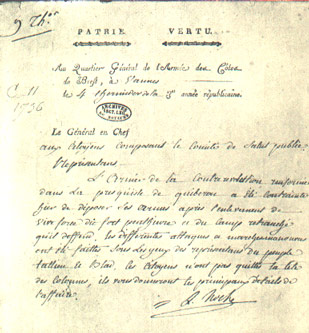 9 Thor
PATRIE. VERTU.
Au Quartier Général de l'Armée des Côtes
de Brest, à Vannes
le 4 thermidor de la 3e année républicaine.
C. 11
1796
ARCHIVES
La Général en Chef
aux Citoyens composant le Comité de Salut public
Représentans,
L'Armée de la contrerévolution renfermée
dans la presqu'isle de quiberon a été contrainte
de déposer les armes après l'enlèvement de
vive force du fort penthièvre et du camp retranché
qu'il deffend, les différentes attaques
ont été faittes sous les yeux des représentans du peuple
tallien et Blad, ces citoyens n'ont pas quitté la tête
des colonnes, ils vous donneront les principaux détails de
l'affaire.
L. Hoche